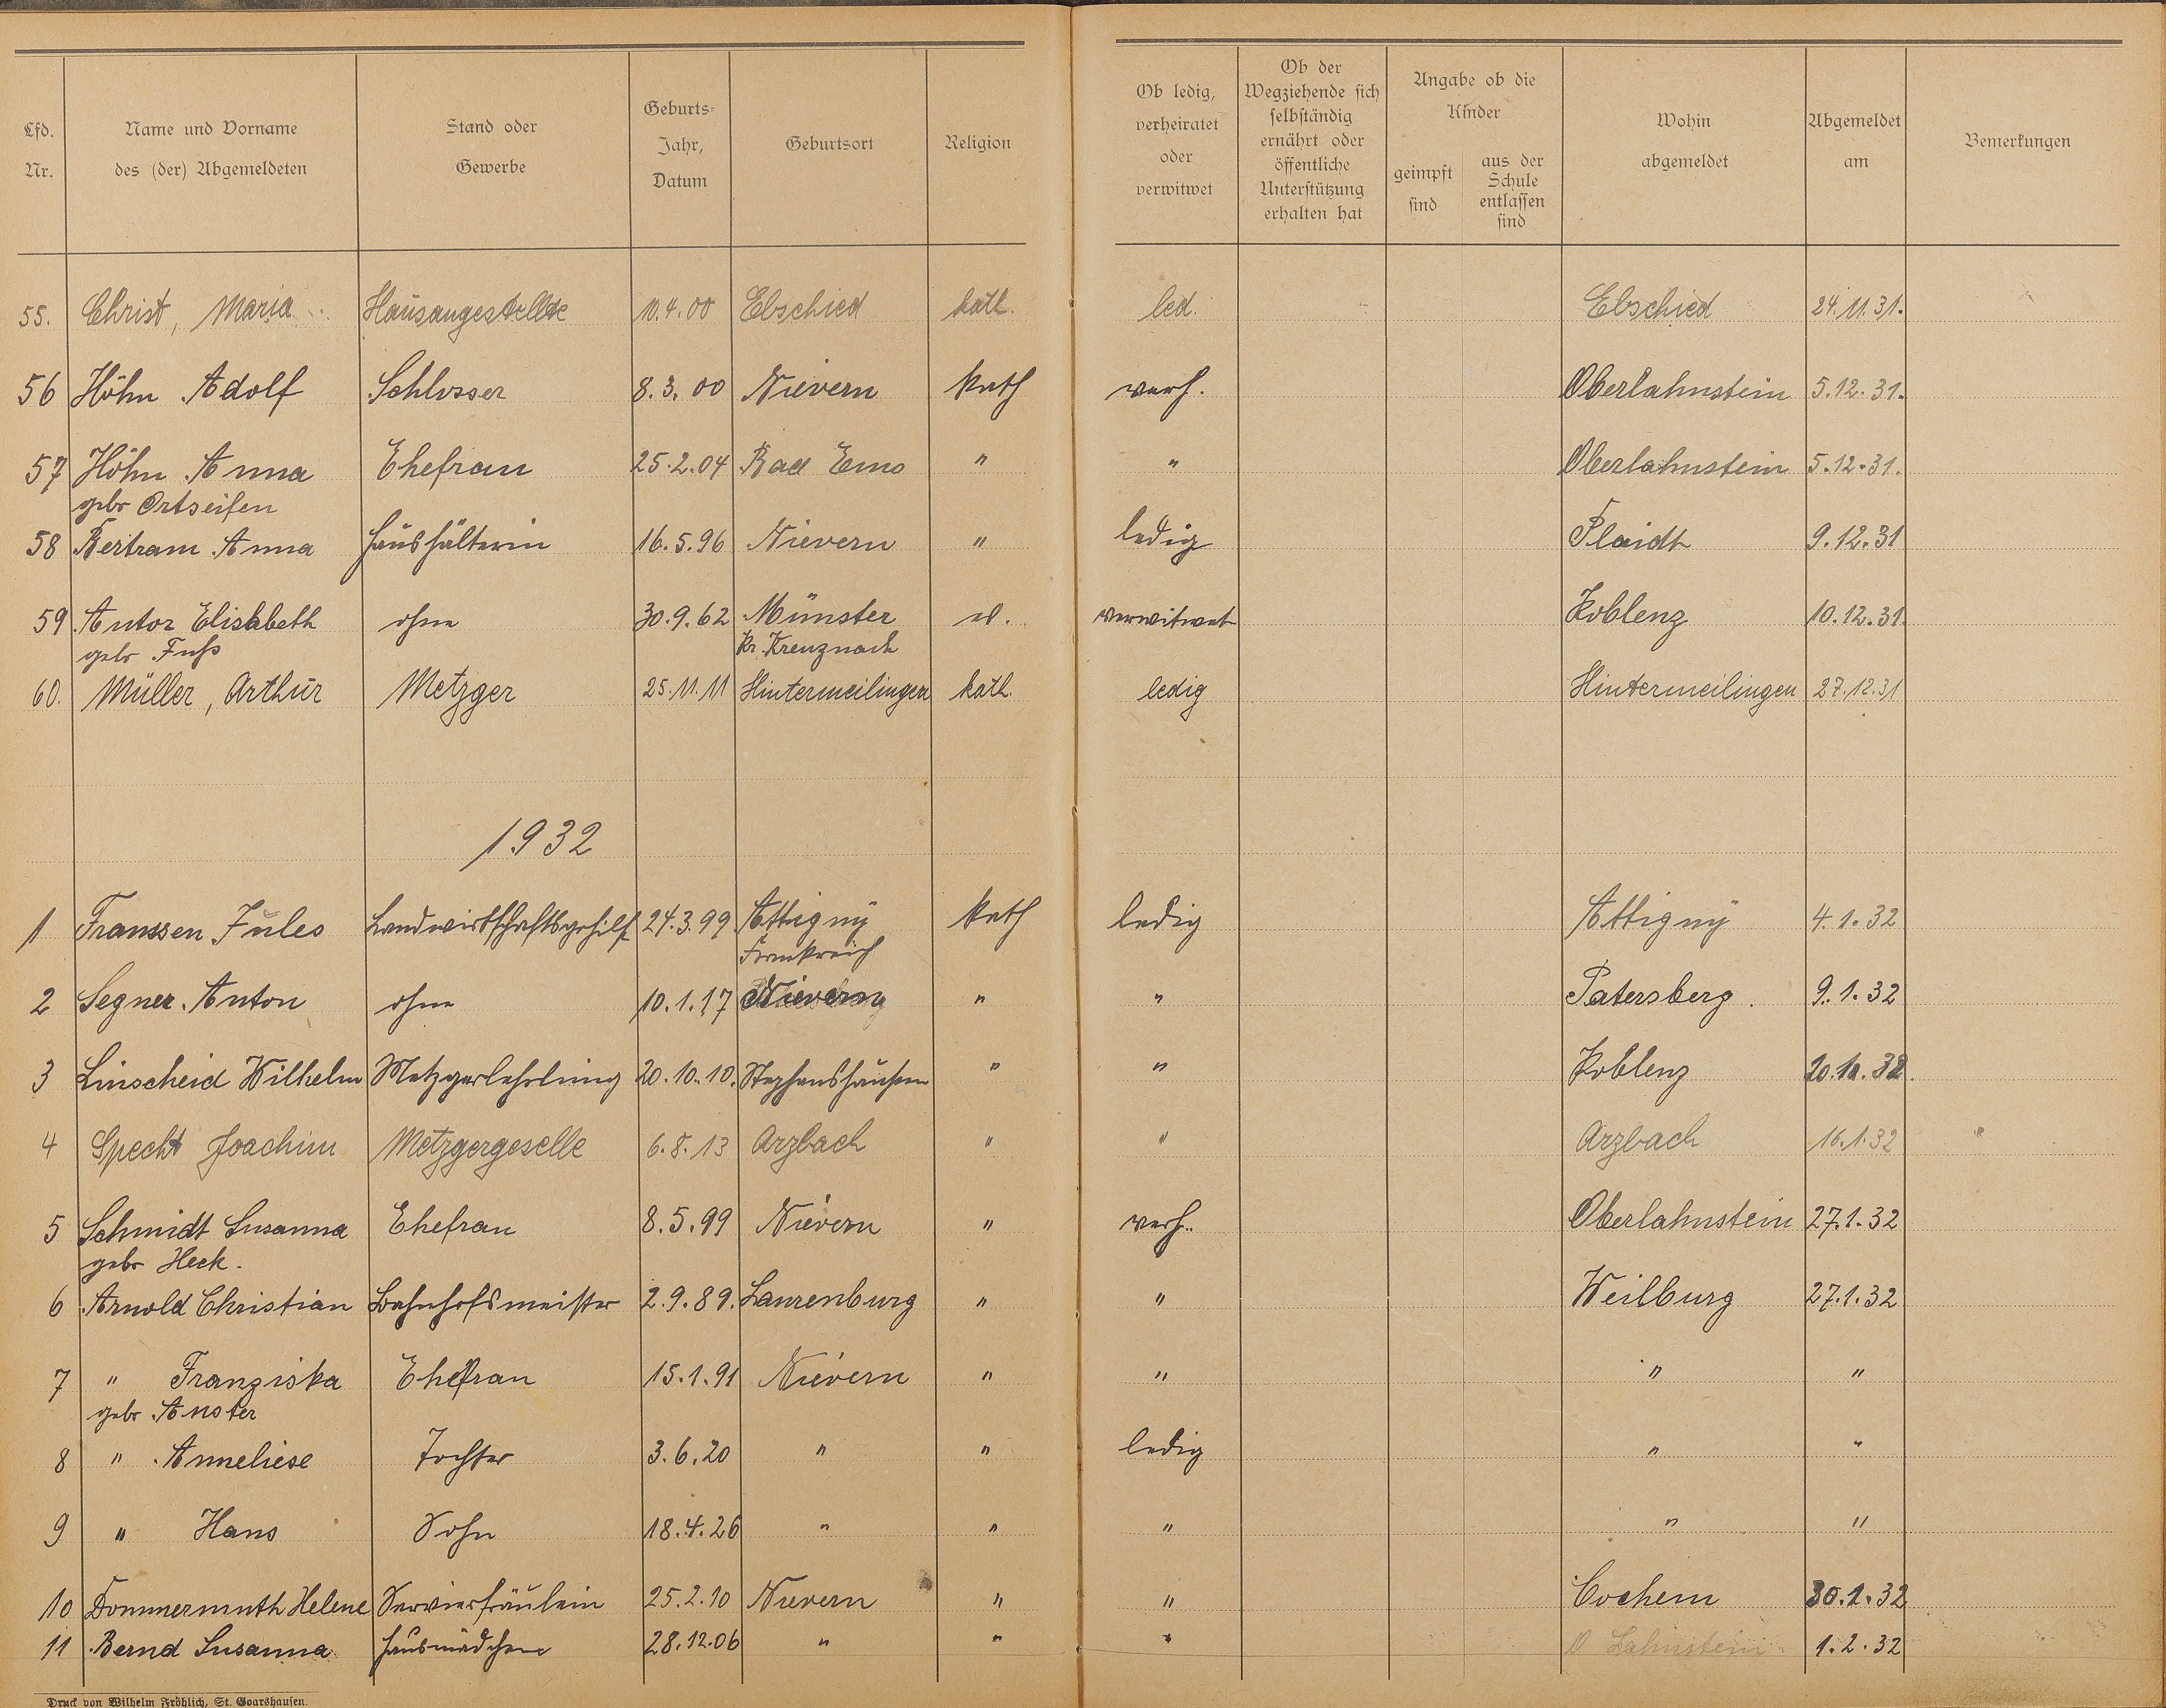 Lfd. Nr. | Name und Vorname des (der) Abgemeldeten | Stand oder Gewerbe | Geburts-Jahr, Datum | Geburtsort | Religion | Ob ledig, verheiratet oder verwitwet | Ob der Wegziehende sich selbständig ernährt oder öffentliche Unterstützung erhalten hat | Angabe ob die Kinder geimpft sind | aus der Schule entlassen sind | Wohin abgemeldet | Abgemeldet am | Bemerkungen
55. Christ, Maria Hausangestellte 10.4.00 Ebschied kath. led. Ebschied 24.11.31.
56 Höhn Adolf Schlosser 8.3.00 Nievern kath verh. Oberlahnstein 5.12.31.
57 Höhn Anna Ehefrau 25.2.04 Bad Ems " " Oberlahnstein 5.12.31.
geb Ortseifen
58 Bertram Anna Haushälterin 16.5.96 Nievern " ledig Plaidt 9.12.31
59 Antor Elisabeth ohne 30.9.62 Münster verwitwet Koblenz 10.12.31.
geb Fuß Kr. Kreuznach
60. Müller, Arthur Metzger 25.11.11 Hintermeilingen kath. ledig Hintermeilingen 27.12.31
1932
1 Franssen Jules Landwirtschaftsgehilf 24.3.99 Attigny kath ledig Attigny 4.1.32
Frankreich
2 Segner Anton ohne 10.1.17 " " Patersberg. 9.1.32
3 Linscheid Wilhelm Metzgerlehrling 20.10.10. Stephanshausen " " Koblenz
4 Specht Joachim Metzgergeselle 6.8.13 Arzbach " " Arzbach 16.1.32
5 Schmidt Susanna Ehefrau 8.5.99 Nievern " verh. Oberlahnstein 27.1.32
geb Heck.
6 Arnold Christian Bahnhofsmeister 2.9.89. Laurenburg " " Weilburg 27.1.32
7 " Franziska Ehefrau 15.1.91 Nievern " " " "
geb Anster
8 " Anneliese Tochter 3.6.20 " " ledig " "
9 " Hans Sohn 18.4.26 " " " " "
10 Dommermuth Helene Servierfräulein 25.2.10 Nievern " " Cochem 30.1.32
11 Bernd Susanna Hausmädchen 28.12.06 " " " O Lahnstein 1.2.32
Druck von Wilhelm Fröhlich, St. Goarshausen.